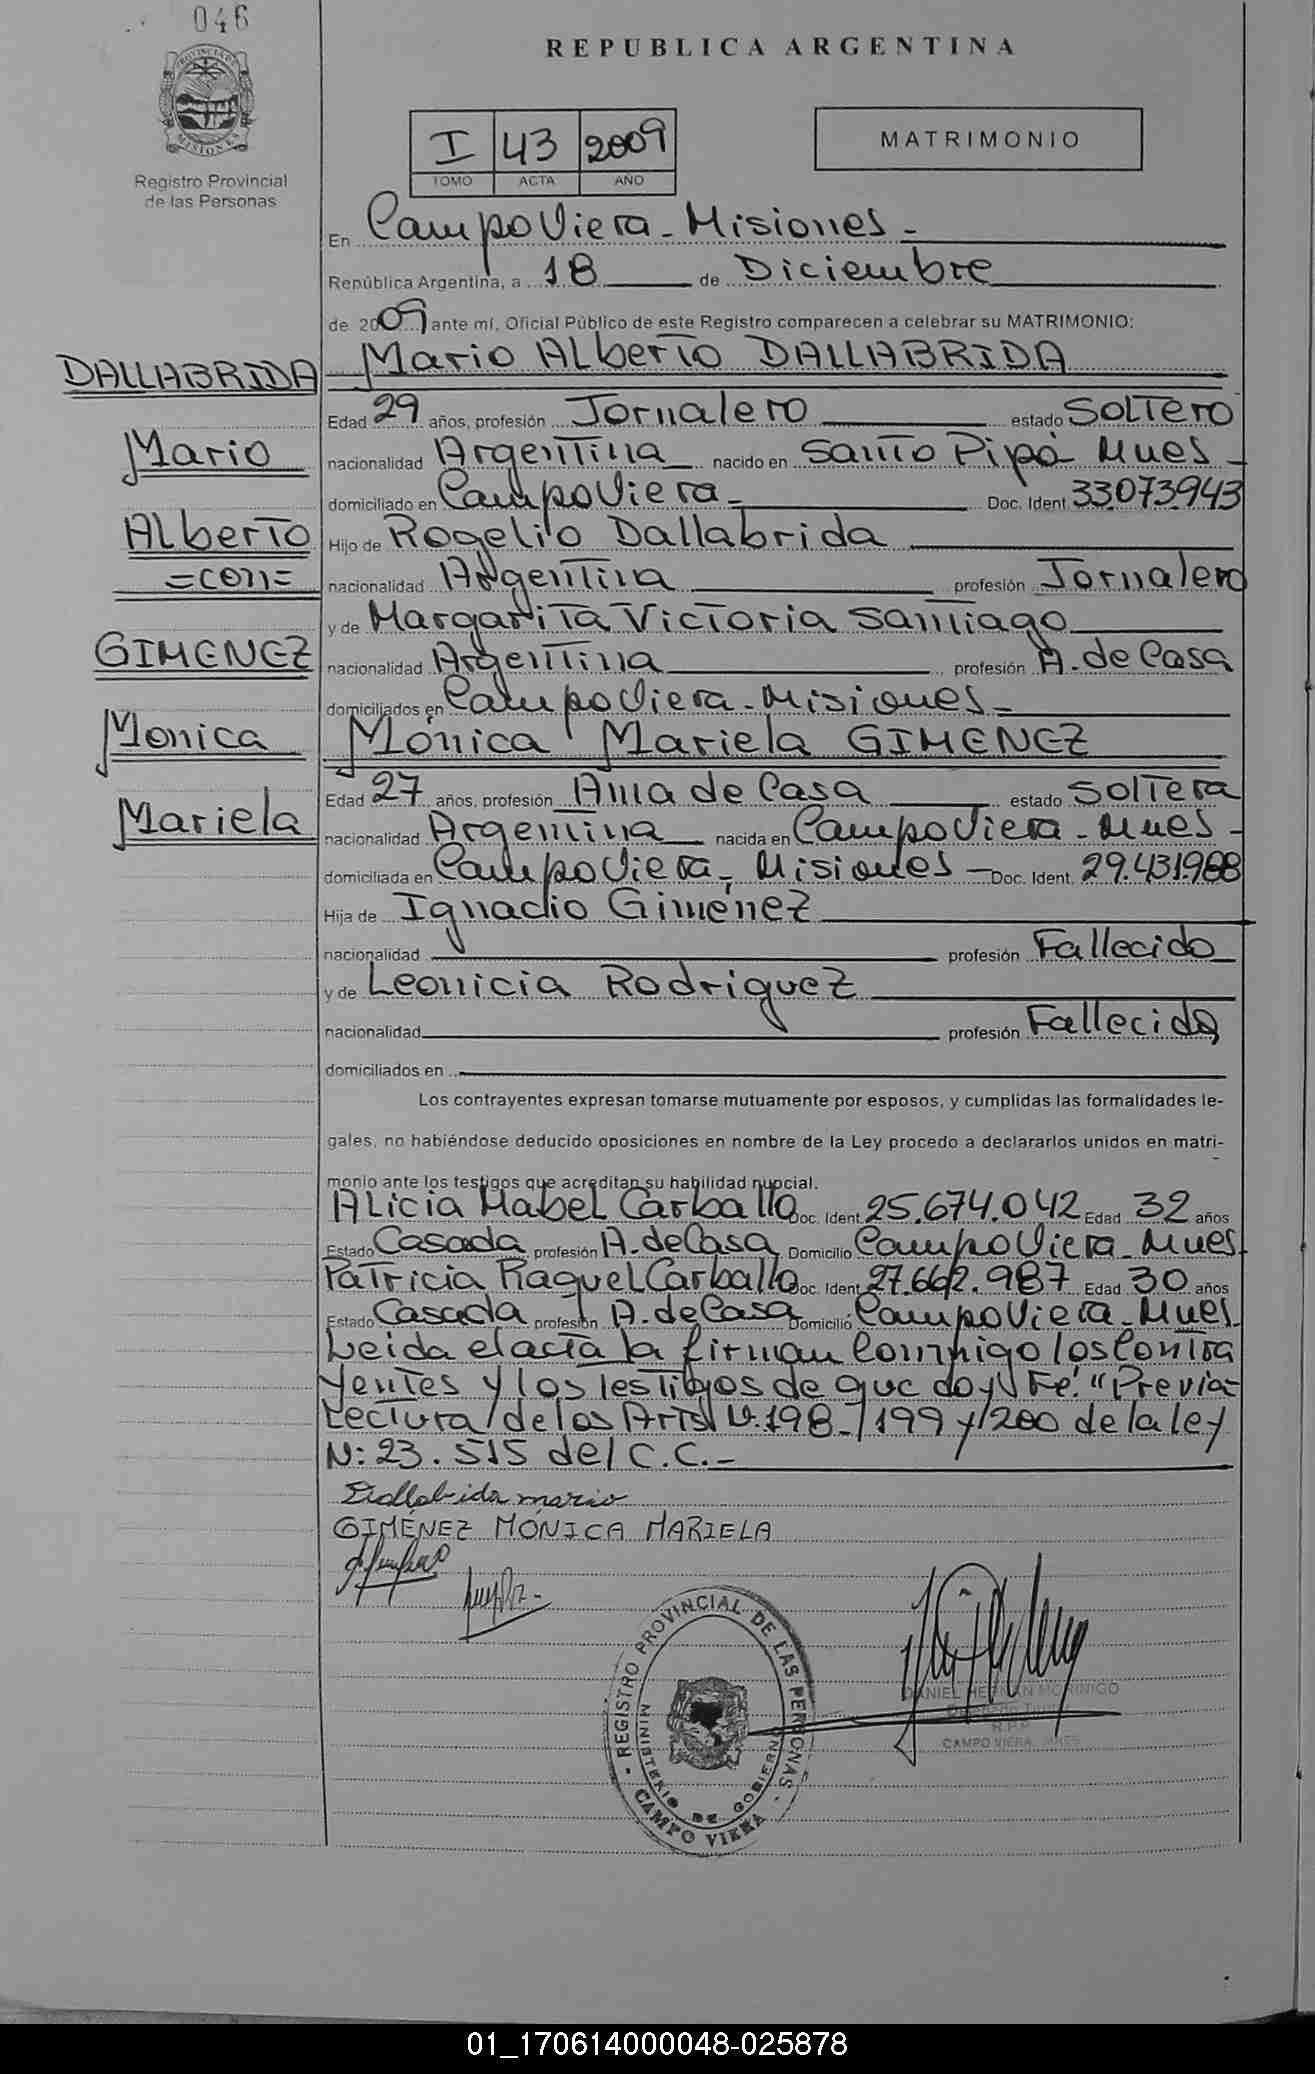 046
REPUBLICA ARGENTINA
PROVINCIA DE
MISIONES
Registro Provincial
de las Personas
I 43 2009
TOMO ACTA AÑO
MATRIMONIO
En Campo Viera - Misiones -
República Argentina, a 18 de Diciembre
de 2009 ante mí, Oficial Público de este Registro comparecen a celebrar su MATRIMONIO:
DALLABRIDA
Mario
Alberto
=con=
GIMENEZ
Monica
Mariela
Mario Alberto DALLABRIDA
Edad 29 años, profesión Jornalero estado Soltero
nacionalidad Argentina nacido en Santo Pipó Mnes -
domiciliado en Campo Viera - Doc. Ident. 33.073.943
Hijo de Rogelio Dallabrida
nacionalidad Argentina profesión Jornalero
y de Margarita Victoria Santiago
nacionalidad Argentina profesión A. de Casa
domiciliados en Campo Viera - Misiones -
Mónica Mariela GIMENEZ
Edad 27 años, profesión Ama de Casa estado Soltera
nacionalidad Argentina nacida en Campo Viera - Mnes -
domiciliada en Campo Viera - Misiones - Doc. Ident. 29.431.988
Hija de Ignacio Giménez
nacionalidad profesión Fallecido
y de Leonicia Rodriguez
nacionalidad profesión Fallecida
domiciliados en
Los contrayentes expresan tomarse mutuamente por esposos, y cumplidas las formalidades le-
gales, no habiéndose deducido oposiciones en nombre de la Ley procedo a declararlos unidos en matri-
monio ante los testigos que acreditan su habilidad nupcial.
Alicia Mabel Carballo Doc. Ident. 25.674.042 Edad 32 años
Estado Casada profesión A. de Casa Domicilio Campo Viera - Mnes
Patricia Raquel Carballo Doc. Ident. 27.662.987 Edad 30 años
Estado Casada profesión A. de Casa Domicilio Campo Viera - Mnes.
Leida el acta la firman Conmigo los Contra
yentes y los testigos de que doy Fé. "Previa
Lectura de los Arts N: 198 - 199 y 200 de la ley
N: 23.515 del C.C. -
Dallabida mario
GIMÉNEZ MÓNICA MARIELA
REGISTRO PROVINCIAL DE LAS PERSONAS
MINISTERIO DE GOBIERNO
CAMPO VIERA
DANIEL HERNAN MORINIGO
R.P.P.
CAMPO VIERA, MNES
01_170614000048-025878